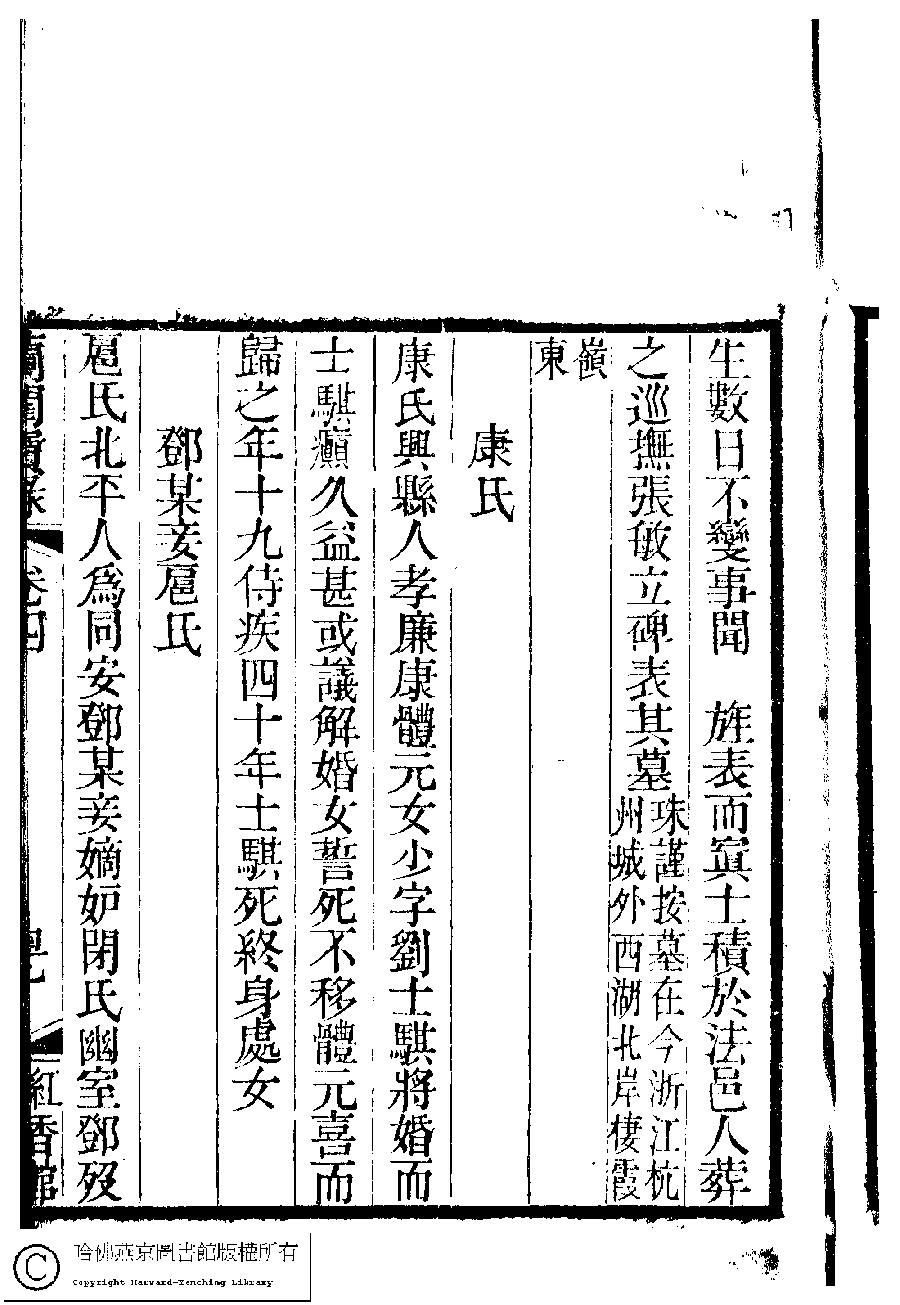 生數日不變事聞　旌表而寘士積於法邑人葬
之巡撫張敏立碑表其墓珠謹按墓在今浙江杭州城外西湖北岸棲霞
嶺東
康氏
康氏興縣人孝廉康體元女少字劉士騏將婚而
士騏癲久益甚或議解婚女誓死不移體元喜而
歸之年十九侍疾四十年士騏死終身處女
鄧某妾扈氏
扈氏北平人爲同安鄧某妾嫡妒閉氏幽室鄧歿
蘭閨寶錄　卷四　紅香館
哈佛燕京圖書館版權所有
Copyright Harvard-Yenching Library